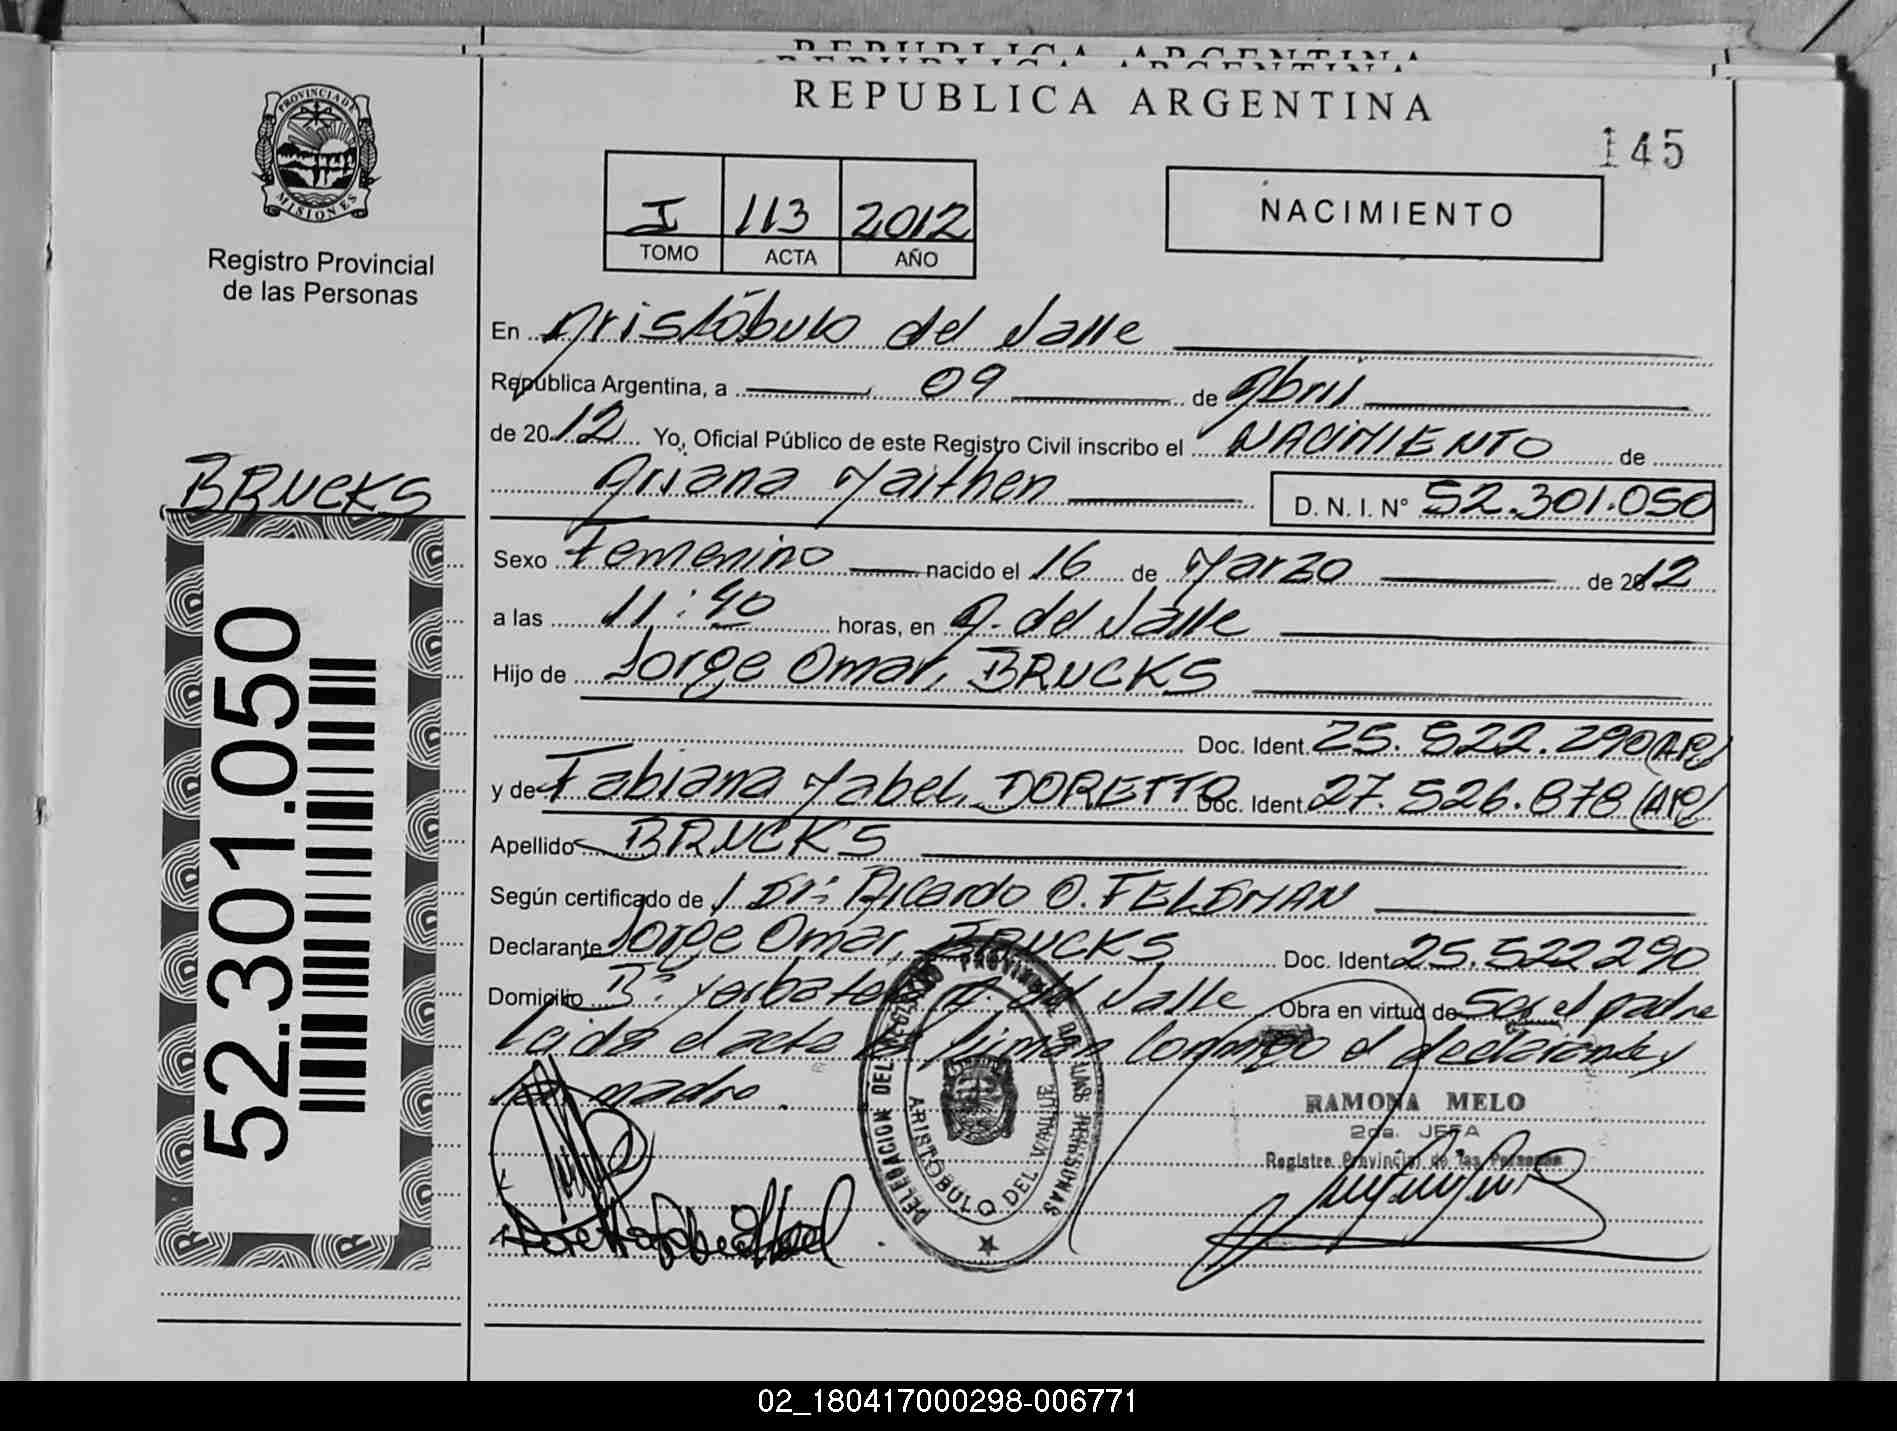 REPUBLICA ARGENTINA
REPUBLICA ARGENTINA
REPUBLICA ARGENTINA
145
PROVINCIA DE MISIONES
Registro Provincial
de las Personas
I 113 2012
TOMO ACTA AÑO
NACIMIENTO
En Aristóbulo del Valle
República Argentina, a 09 de Abril
de 2012 Yo, Oficial Público de este Registro Civil inscribo el NACIMIENTO de
BRUCKS
Ariana Maithen D. N. I. N° 52.301.050
Sexo Femenino nacido el 16 de Marzo de 2012
a las 11:40 horas, en A. del Valle
Hijo de Jorge Omar, BRUCKS
Doc. Ident. 25.522.290 (AP)
y de Fabiana Mabel, DORETTO Doc. Ident. 27.526.878 (AP)
Apellido BRUCKS
Según certificado de Dr: Ricardo O. FELDMAN
Declarante Jorge Omar, BRUCKS Doc. Ident. 25.522290
Domicilio B° Yerbatero A. del Valle Obra en virtud de Ser el padre
Leida el acta firman conmigo el declarante y
la madre.
52.301.050
DELEGACION DEL REGISTRO PROVINCIAL DE LAS PERSONAS
ARISTÓBULO DEL VALLE
RAMONA MELO
2da. JEFA
Registro Provincial de las Personas
Doretto Fabiana Mabel
02_180417000298-006771